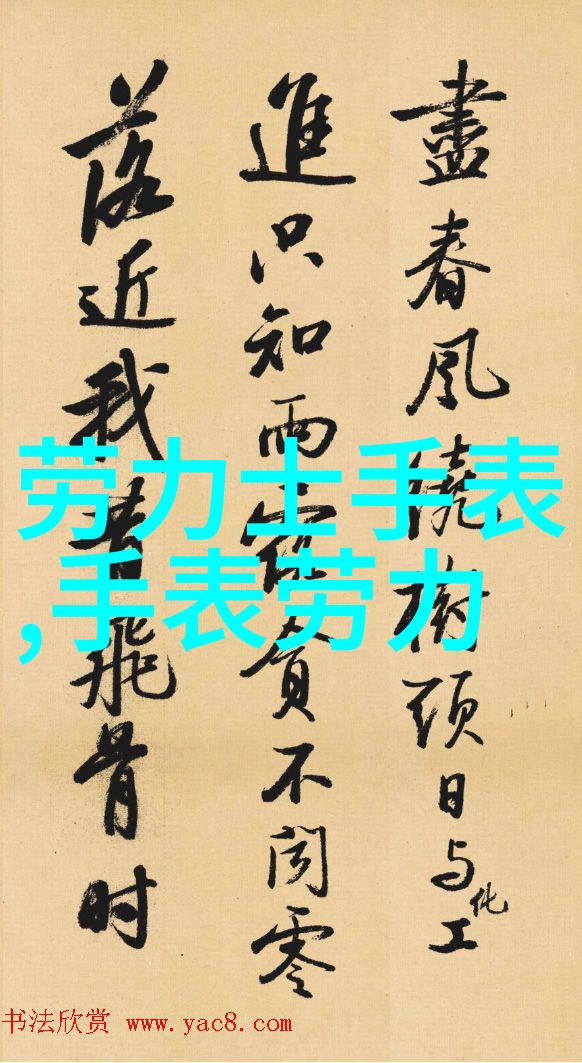 盡春風繞樹頭日与化工
進只知雨露貪不聞零
落近我昔飛骨时
劳力士手表
,手表劳力
书法欣赏 www.yac8.com